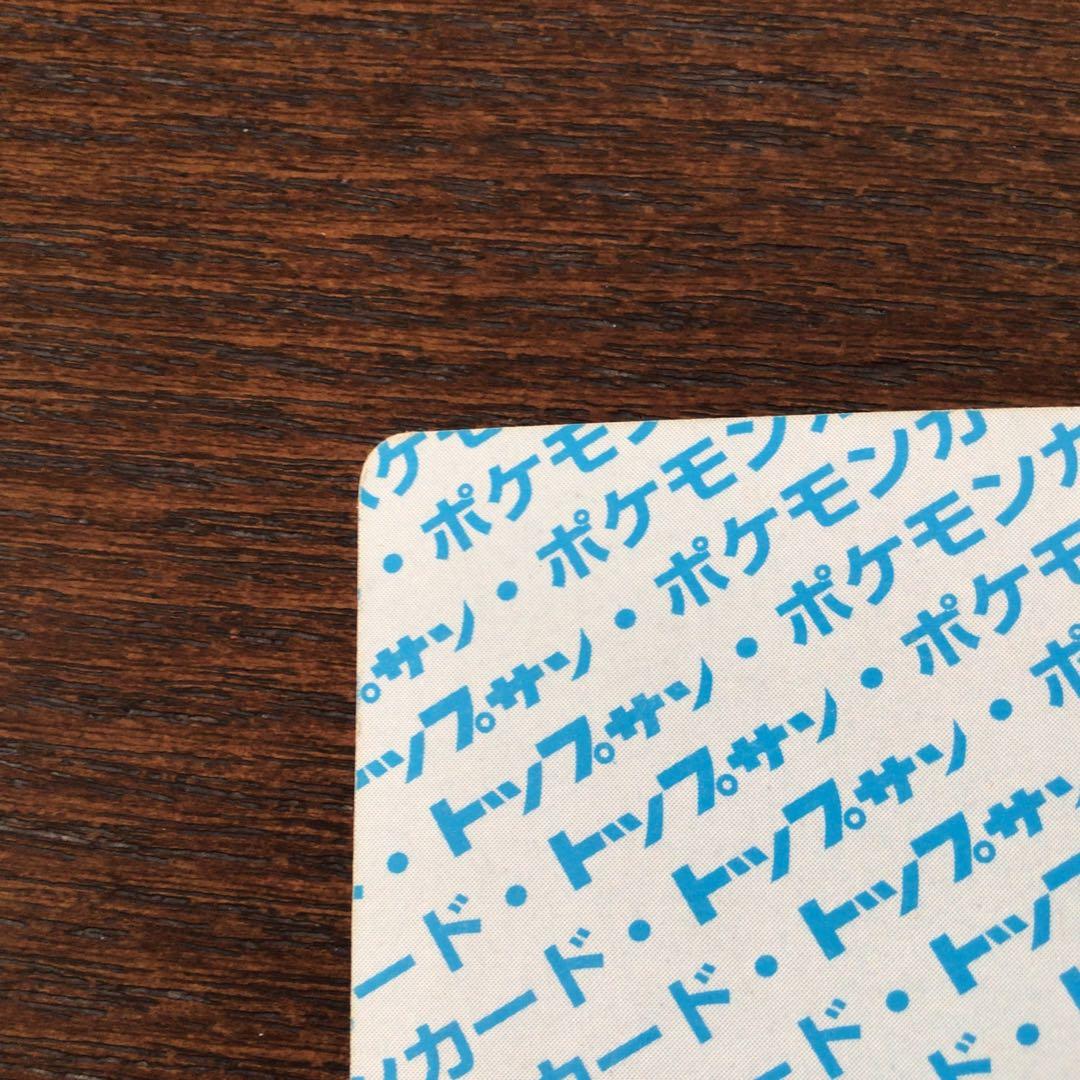 ケモ
・ポケモ
サン・ポケモン
ップサン・ポケモンカ
・トップサン・ポケモンカ
ード・トップサン・ポケモ
ンカード・トップサン・ポ
カード・トップサ
ード・トッ
ド・